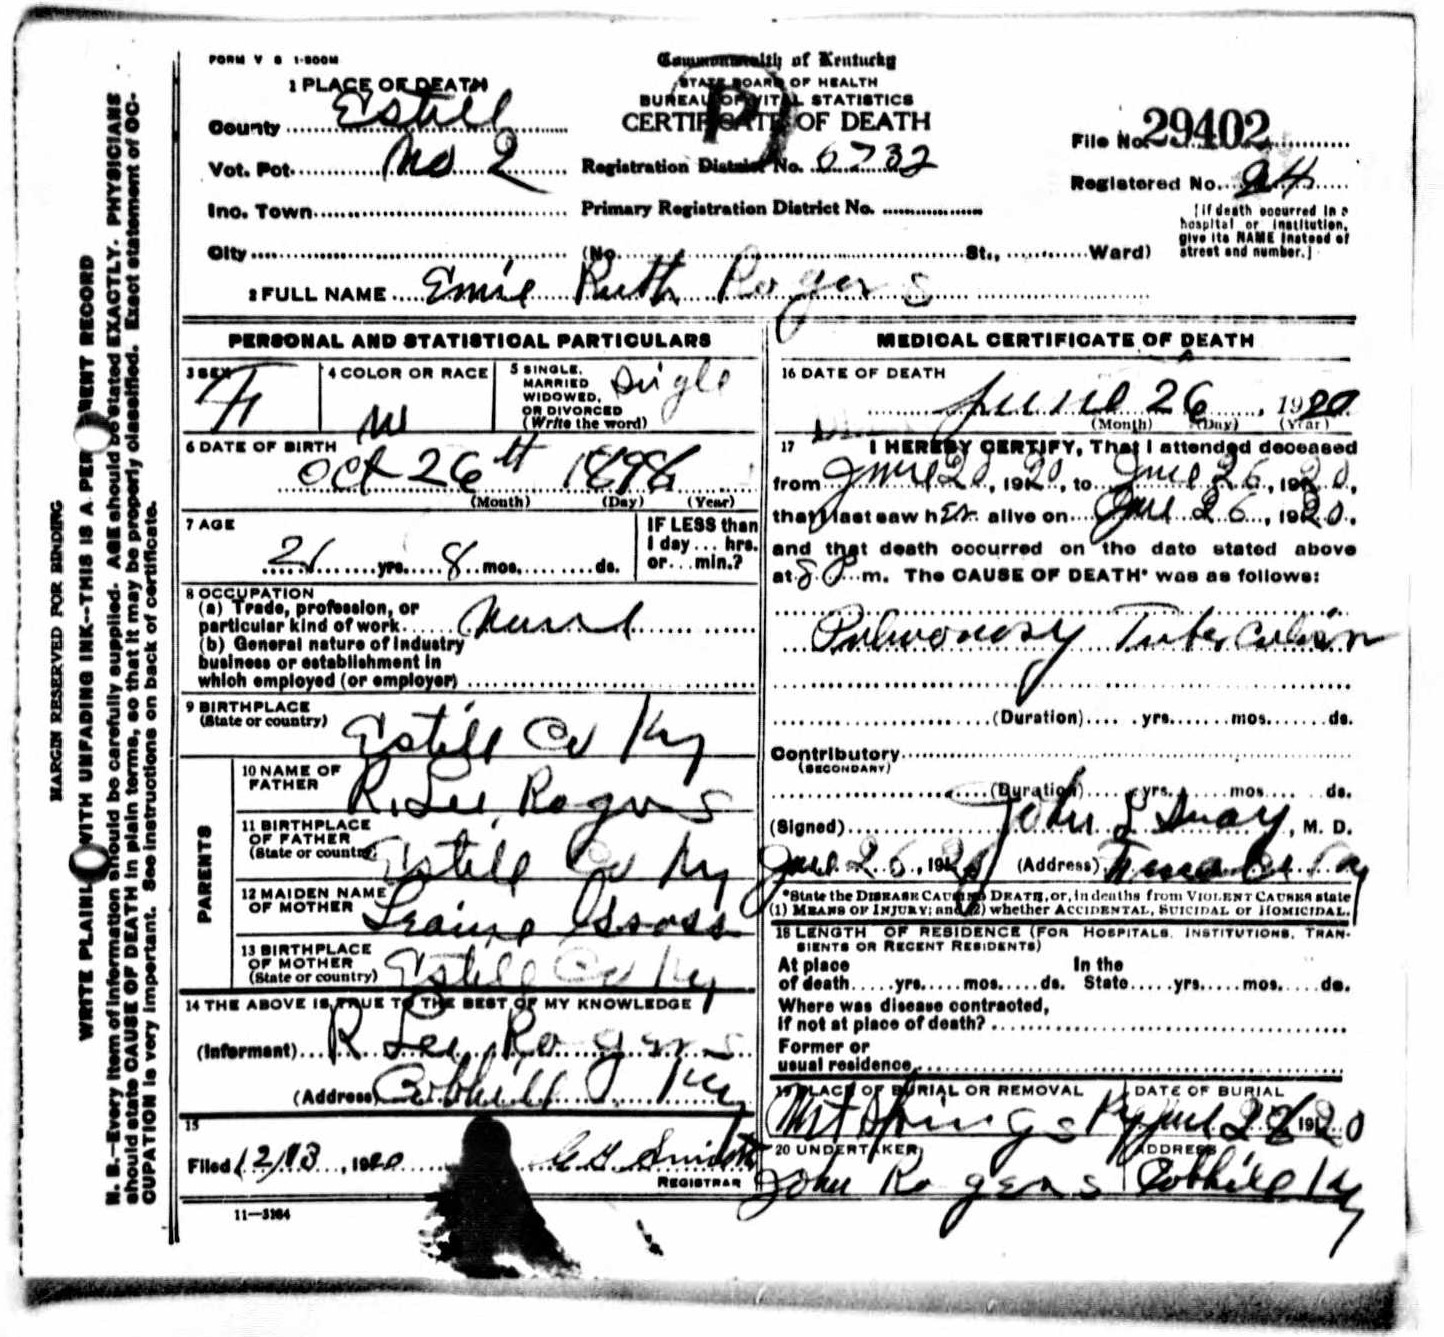 FORM V S 1-500M
Commonwealth of Kentucky
STATE BOARD OF HEALTH
BUREAU OF VITAL STATISTICS
CERTIFICATE OF DEATH
P
1 PLACE OF DEATH
County Estill
Vot. Pct. No 2
Inc. Town
City
Registration District No. 6732
Primary Registration District No.
(No. St., Ward)
File No. 29402
Registered No. 24
[If death occurred in a
hospital or institution,
give its NAME instead of
street and number.]
2 FULL NAME Emie Ruth Rogers
PERSONAL AND STATISTICAL PARTICULARS
3 SEX F
4 COLOR OR RACE W
5 SINGLE,
MARRIED
WIDOWED,
OR DIVORCED
(Write the word)
Single
6 DATE OF BIRTH
Oct 26th 1898
(Month) (Day) (Year)
7 AGE
21 yrs. 8 mos. ds.
IF LESS than
1 day ... hrs.
or ... min.?
8 OCCUPATION
(a) Trade, profession, or
particular kind of work
(b) General nature of industry
business or establishment in
which employed (or employer)
9 BIRTHPLACE
(State or country)
Estill Co Ky
PARENTS
10 NAME OF
FATHER
R. Lee Rogers
11 BIRTHPLACE
OF FATHER
(State or country)
Estill Co Ky
12 MAIDEN NAME
OF MOTHER
13 BIRTHPLACE
OF MOTHER
(State or country)
Estill Co Ky
14 THE ABOVE IS TRUE TO THE BEST OF MY KNOWLEDGE
(Informant) R Lee Rogers
(Address) Cobhill Ky
15
Filed 12/13, 1920 Smith
REGISTRAR
11—3184
MEDICAL CERTIFICATE OF DEATH
16 DATE OF DEATH
June 26, 1920
(Month) (Day) (Year)
17 I HEREBY CERTIFY, That I attended deceased
from June 20, 1920, to June 26, 1920,
that I last saw her alive on June 26, 1920,
and that death occurred on the date stated above
at 8 P m. The CAUSE OF DEATH* was as follows:
Pulmonary Tuberculosis
(Duration) yrs. mos. ds.
Contributory
(SECONDARY)
(Duration) yrs. mos. ds.
(Signed) John , M. D.
June 26, 1920 (Address)
*State the DISEASE CAUSING DEATH, or, in deaths from VIOLENT CAUSES state
(1) MEANS OF INJURY; and (2) whether ACCIDENTAL, SUICIDAL OR HOMICIDAL.
18 LENGTH OF RESIDENCE (FOR HOSPITALS, INSTITUTIONS, TRAN-
SIENTS OR RECENT RESIDENTS)
At place In the
of death yrs. mos. ds. State yrs. mos. ds.
Where was disease contracted,
If not at place of death?
Former or
usual residence
19 PLACE OF BURIAL OR REMOVAL DATE OF BURIAL
Mt Springs Ky 1920
20 UNDERTAKER ADDRESS
John Rogers Cobhill Ky
MARGIN RESERVED FOR BINDING
WRITE PLAINLY WITH UNFADING INK—THIS IS A PERMANENT RECORD
N. B.—Every item of information should be carefully supplied. AGE should be stated EXACTLY. PHYSICIANS
should state CAUSE OF DEATH in plain terms, so that it may be properly classified. Exact statement of OC-
CUPATION is very important. See instructions on back of certificate.